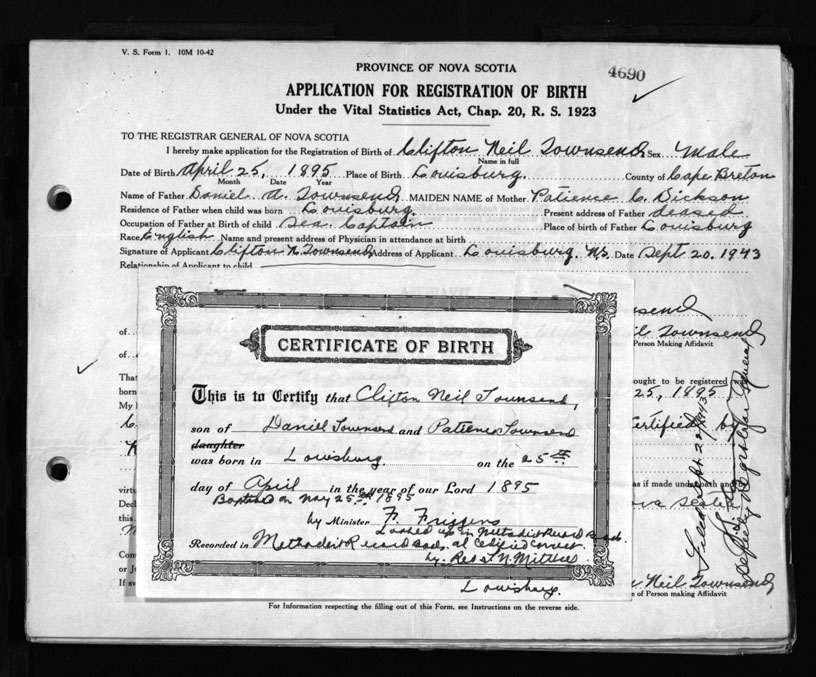 V. S. Form 1. 10M 10-42
PROVINCE OF NOVA SCOTIA
4690
APPLICATION FOR REGISTRATION OF BIRTH
Under the Vital Statistics Act, Chap. 20, R. S. 1923
TO THE REGISTRAR GENERAL OF NOVA SCOTIA
I hereby make application for the Registration of Birth of Clifton Neil Townsend Sex Male
Name in full
Date of Birth April 25, 1895 Place of Birth Louisburg. County of Cape Breton
Month Date Year
Name of Father Daniel A. Townsend MAIDEN NAME of Mother Patience C. Dickson
Residence of Father when child was born Louisburg. Present address of Father deased
Occupation of Father at Birth of child Sea Captain Place of birth of Father Louisburg
Race English Name and present address of Physician in attendance at birth
Signature of Applicant Clifton N. Townsend Address of Applicant Louisburg, N.S. Date Sept. 20. 1943
Relationship of Applicant to child
AFFIDAVIT
Townsend
Person Making Affidavit
of
of
That
born
My
ought to be registered
25, 1895
Certified by
as if made under oath and
virtu
Decl
this
Com
or Ju
If sw
Neil Townsend
e of Person making Affidavit
Deputy Registrar General
CERTIFICATE OF BIRTH
This is to Certify that Clifton Neil Townsend,
son of Daniel Townsend and Patience Townsend
daughter
was born in Louisburg. on the 25th
day of April in the year of our Lord 1895
Baptised on May 25th 1895
by Minister F. Friggens
Looked up in Methodist Record Book.
Recorded in Methodist Record Book. at Certified Correct
by. Rev
Louisburg.
For Information respecting the filling out of this Form, see Instructions on the reverse side.